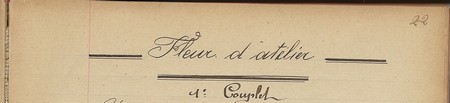 22
Fleur d'atelier
1º Couplet